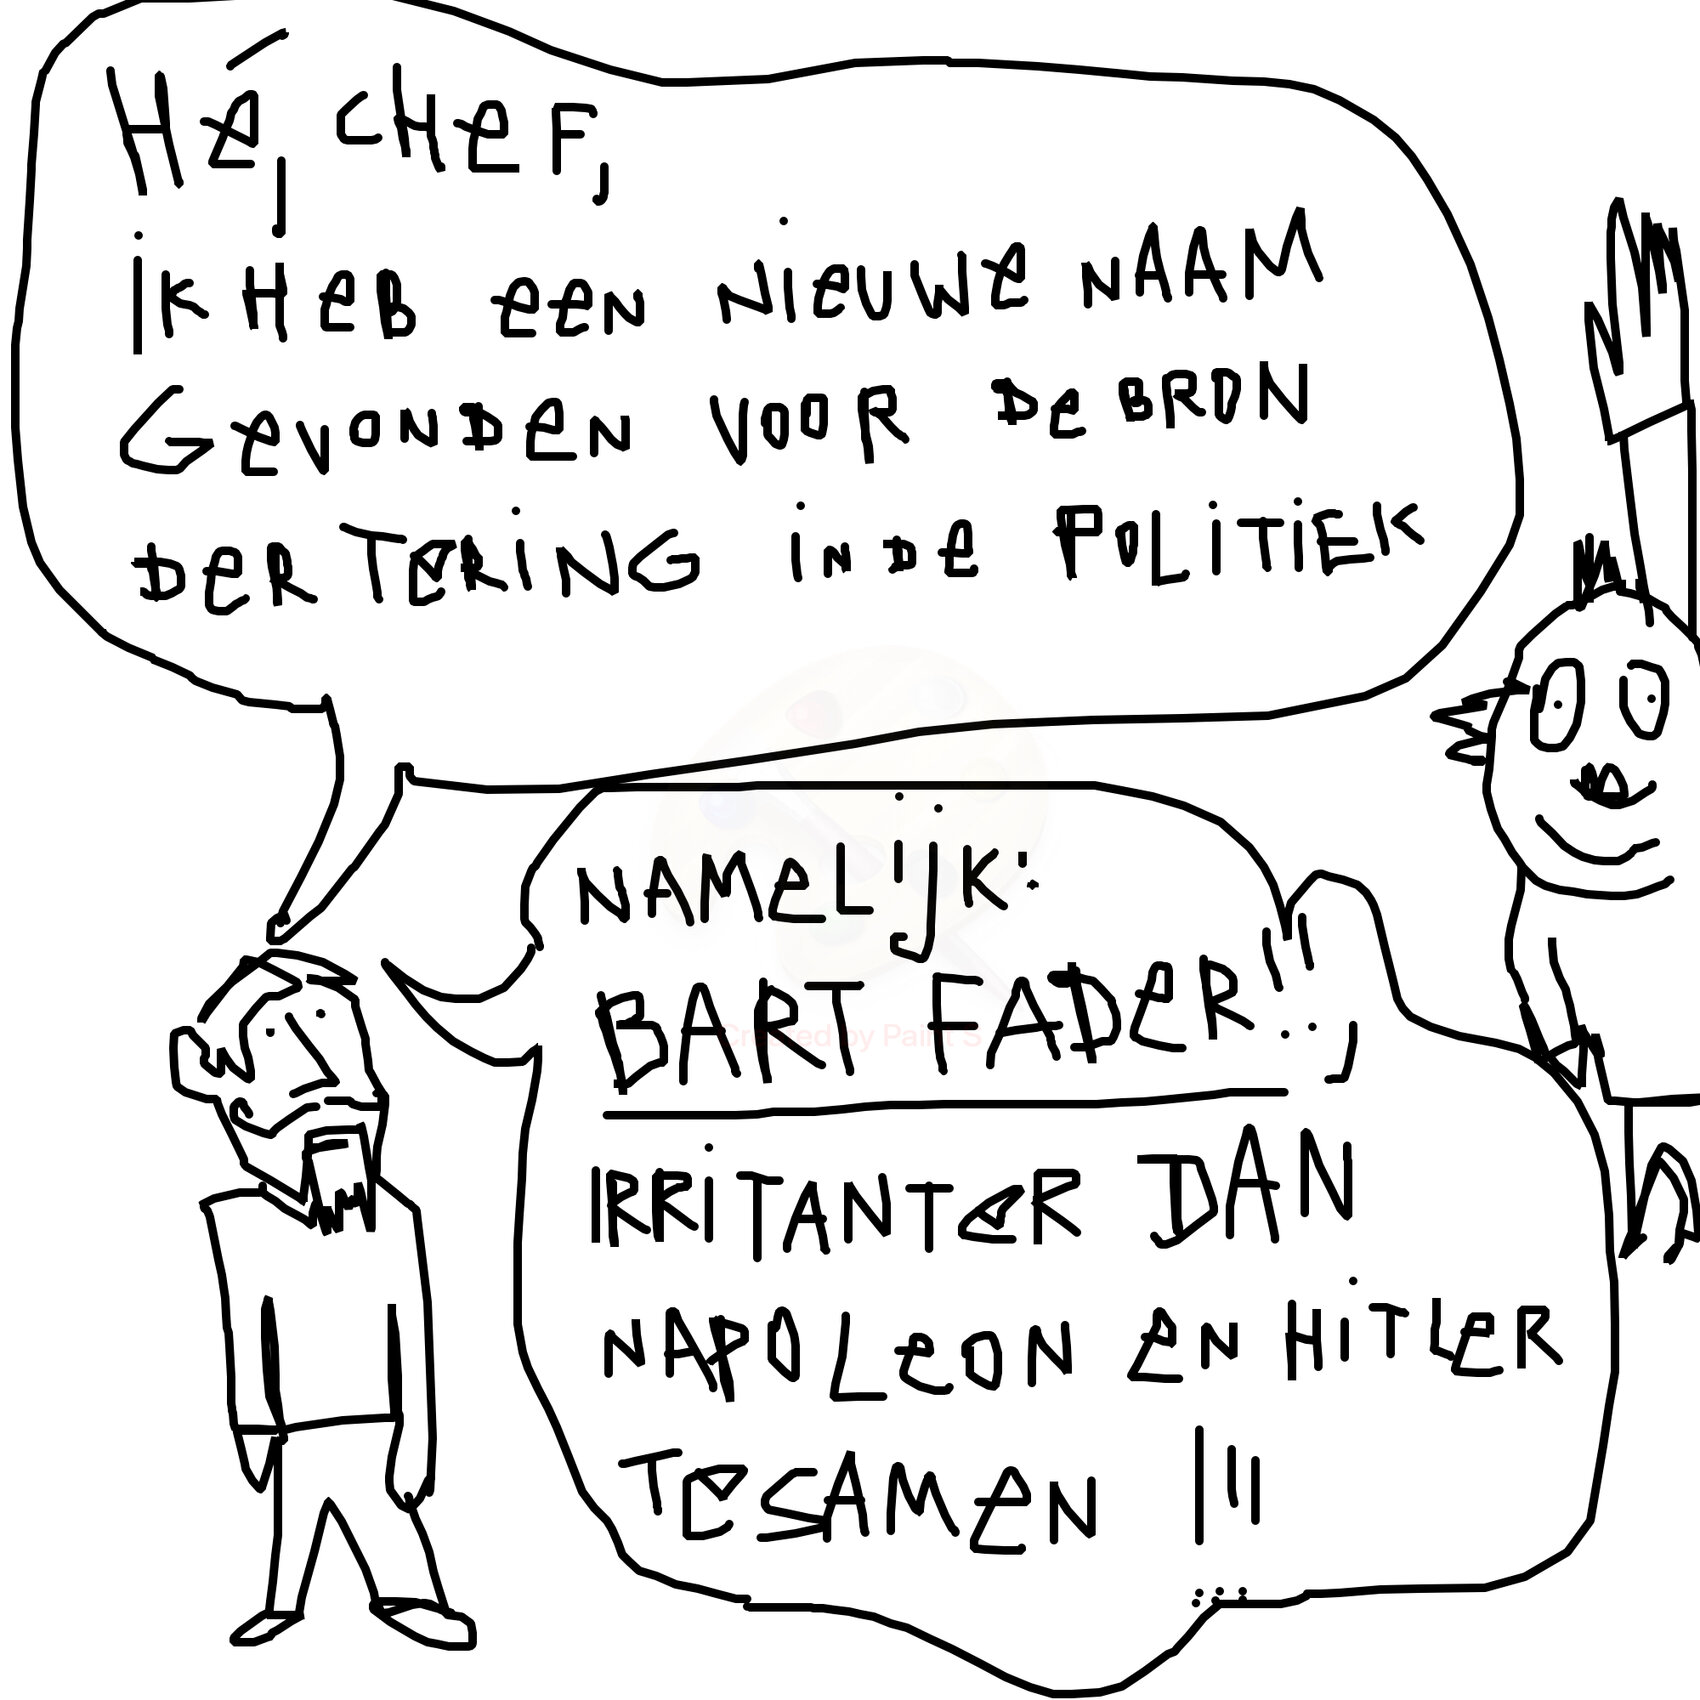 Hé, CHEF,
IK HEB EEN NIEUWE NAAM
GEVONDEN VOOR DE BRON
DER TERING IN DE POLITIEK
NAMELIJK:
BART FADER!!,
IRRITANTER DAN
NAPOLEON EN HITLER
TESAMEN !!!
Created by Paint S